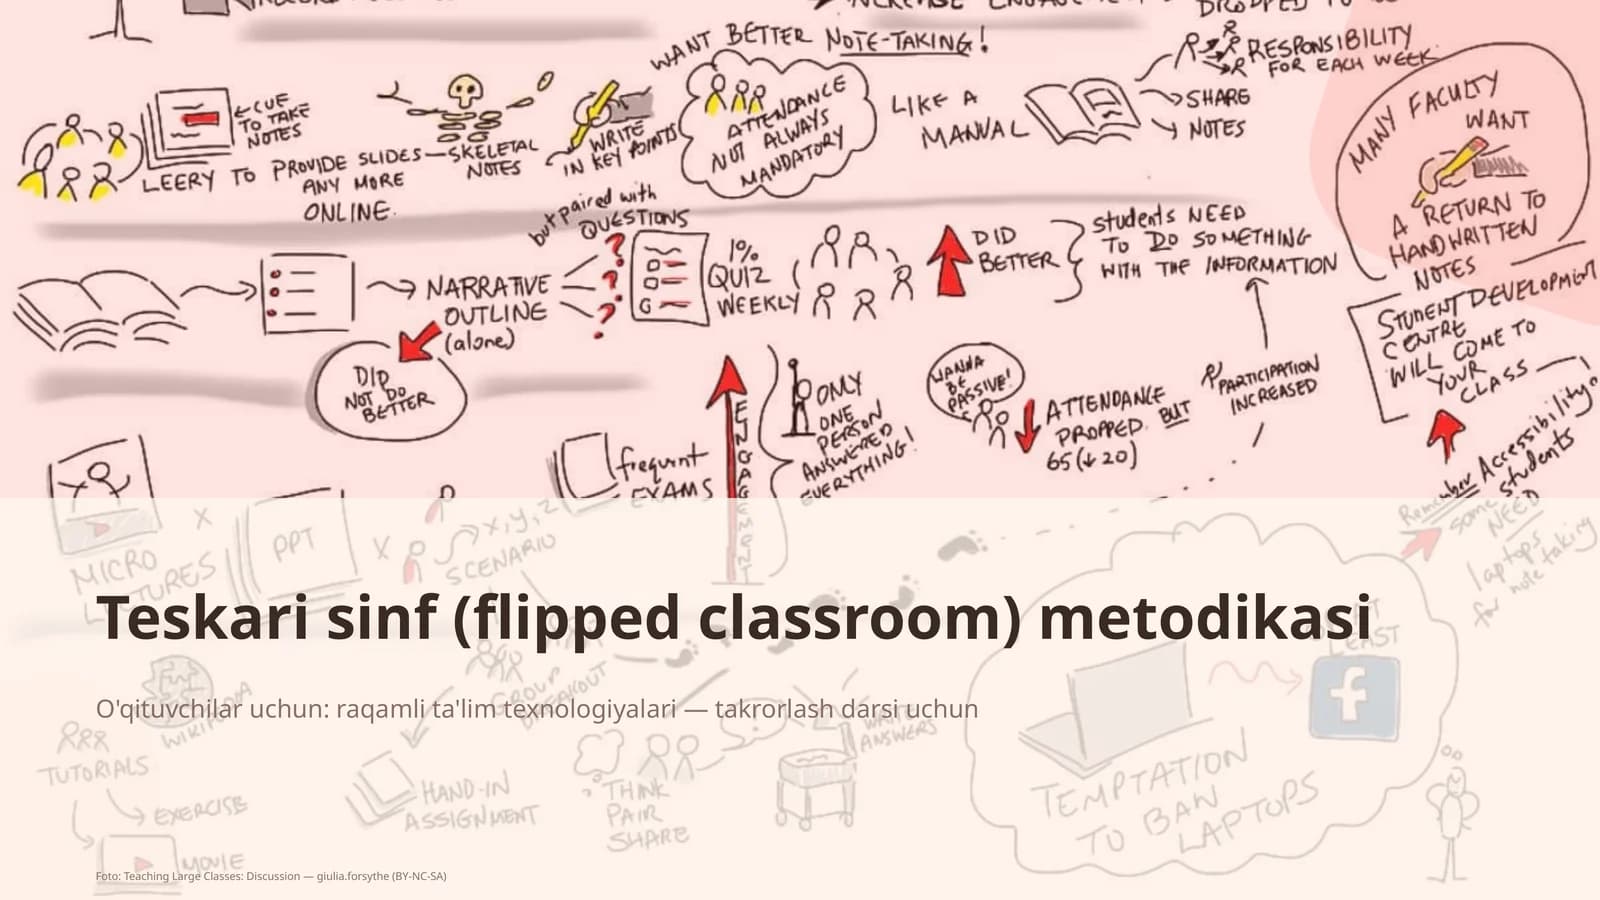 WANT BETTER NOTE-TAKING!
RESPONSIBILITY
FOR EACH WEEK
←CUE
TO TAKE
NOTES
LEERY TO PROVIDE SLIDES—SKELETAL
NOTES
ANY MORE
ONLINE.
WRITE
IN KEY POINTS
ATTENDANCE
NOT ALWAYS
MANDATORY
LIKE A
MANUAL
SHARE
NOTES
MANY FACULTY
WANT
A RETURN TO
HANDWRITTEN
NOTES
but paired with
QUESTIONS
NARRATIVE
OUTLINE
(alone)
DID
NOT DO
BETTER
1%
QUIZ
WEEKLY
DID
BETTER
students NEED
TO DO SOMETHING
WITH THE INFORMATION
STUDENT DEVELOPMENT
CENTRE
WILL COME TO
YOUR
CLASS
frequent
EXAMS
ENGAGEMENT
ONLY
ONE
PERSON
ANSWERED
EVERYTHING!
WANNA
BE
PASSIVE!
ATTENDANCE
DROPPED. BUT
65 (↓ 20)
PARTICIPATION
INCREASED
Remember Accessibility
some students
NEED
laptops
for note taking
MICRO
LECTURES
X
PPT
X
x, y, z
SCENARIO
Teskari sinf (flipped classroom) metodikasi
O'qituvchilar uchun: raqamli ta'lim texnologiyalari — takrorlash darsi uchun
WIKIPEDIA
GROUP
BREAKOUT
WRITE
ANSWERS
TUTORIALS
EXERCISE
MOVIE
HAND-IN
ASSIGNMENT
THINK
PAIR
SHARE
TEMPTATION
TO BAN
LAPTOPS
Foto: Teaching Large Classes: Discussion — giulia.forsythe (BY-NC-SA)